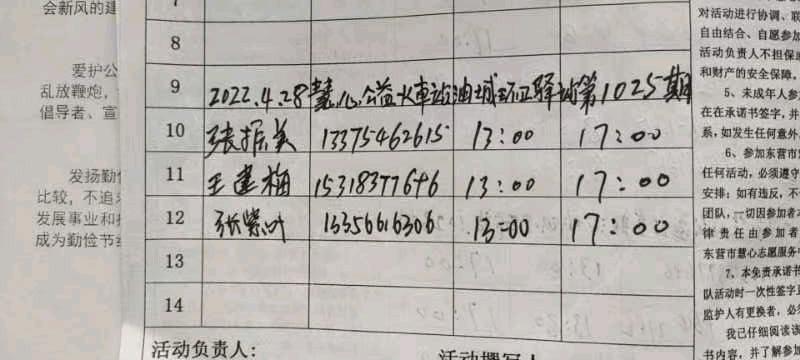 会新风的建
爱护公
乱放鞭炮,
倡导者、宣
发扬勤俭
比较,不追求
发展事业和
成为勤俭节
8
9 2022.4.28慧心公益火車站油城环卫驿站第1025期
10 张振美 13375462615 13:00 17:00
11 王建梅 15318377646 13:00 17:00
12 张紫叶 13356616306 13:00 17:00
13
14
活动负责人:
活动撰写人
对活动进行协调、联
自由结合、自愿参加
活动负责人不担保
和财产的安全保障。
5、未成年人参
在在承诺书签字,并
系,如发生任何意外
6、参加东营市
任何活动,必须遵守
安排;如有违反,不
团队,一切因参加者
律责任由参加者
东营市慧心志愿服务
7、本免责承诺书
队活动时一次性签字
监护人有更换者,必须
我已仔细阅读该
书内容,并了解参加